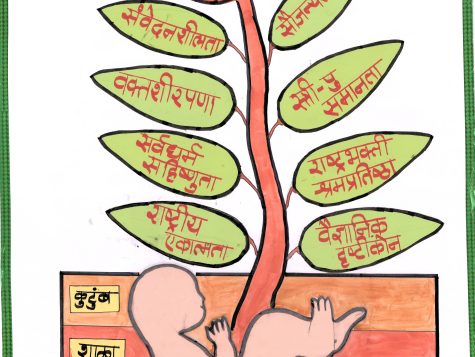 संवेदनशीलता
सौजन्य
वक्तशीरपणा
स्त्री-पु
समानता
सर्वधर्म
सहिष्णुता
राष्ट्रभक्ती
श्रमप्रतिष्ठा
राष्ट्रीय
एकात्मता
वैज्ञानिक
दृष्टीकोन
कुटुंब
शाळा